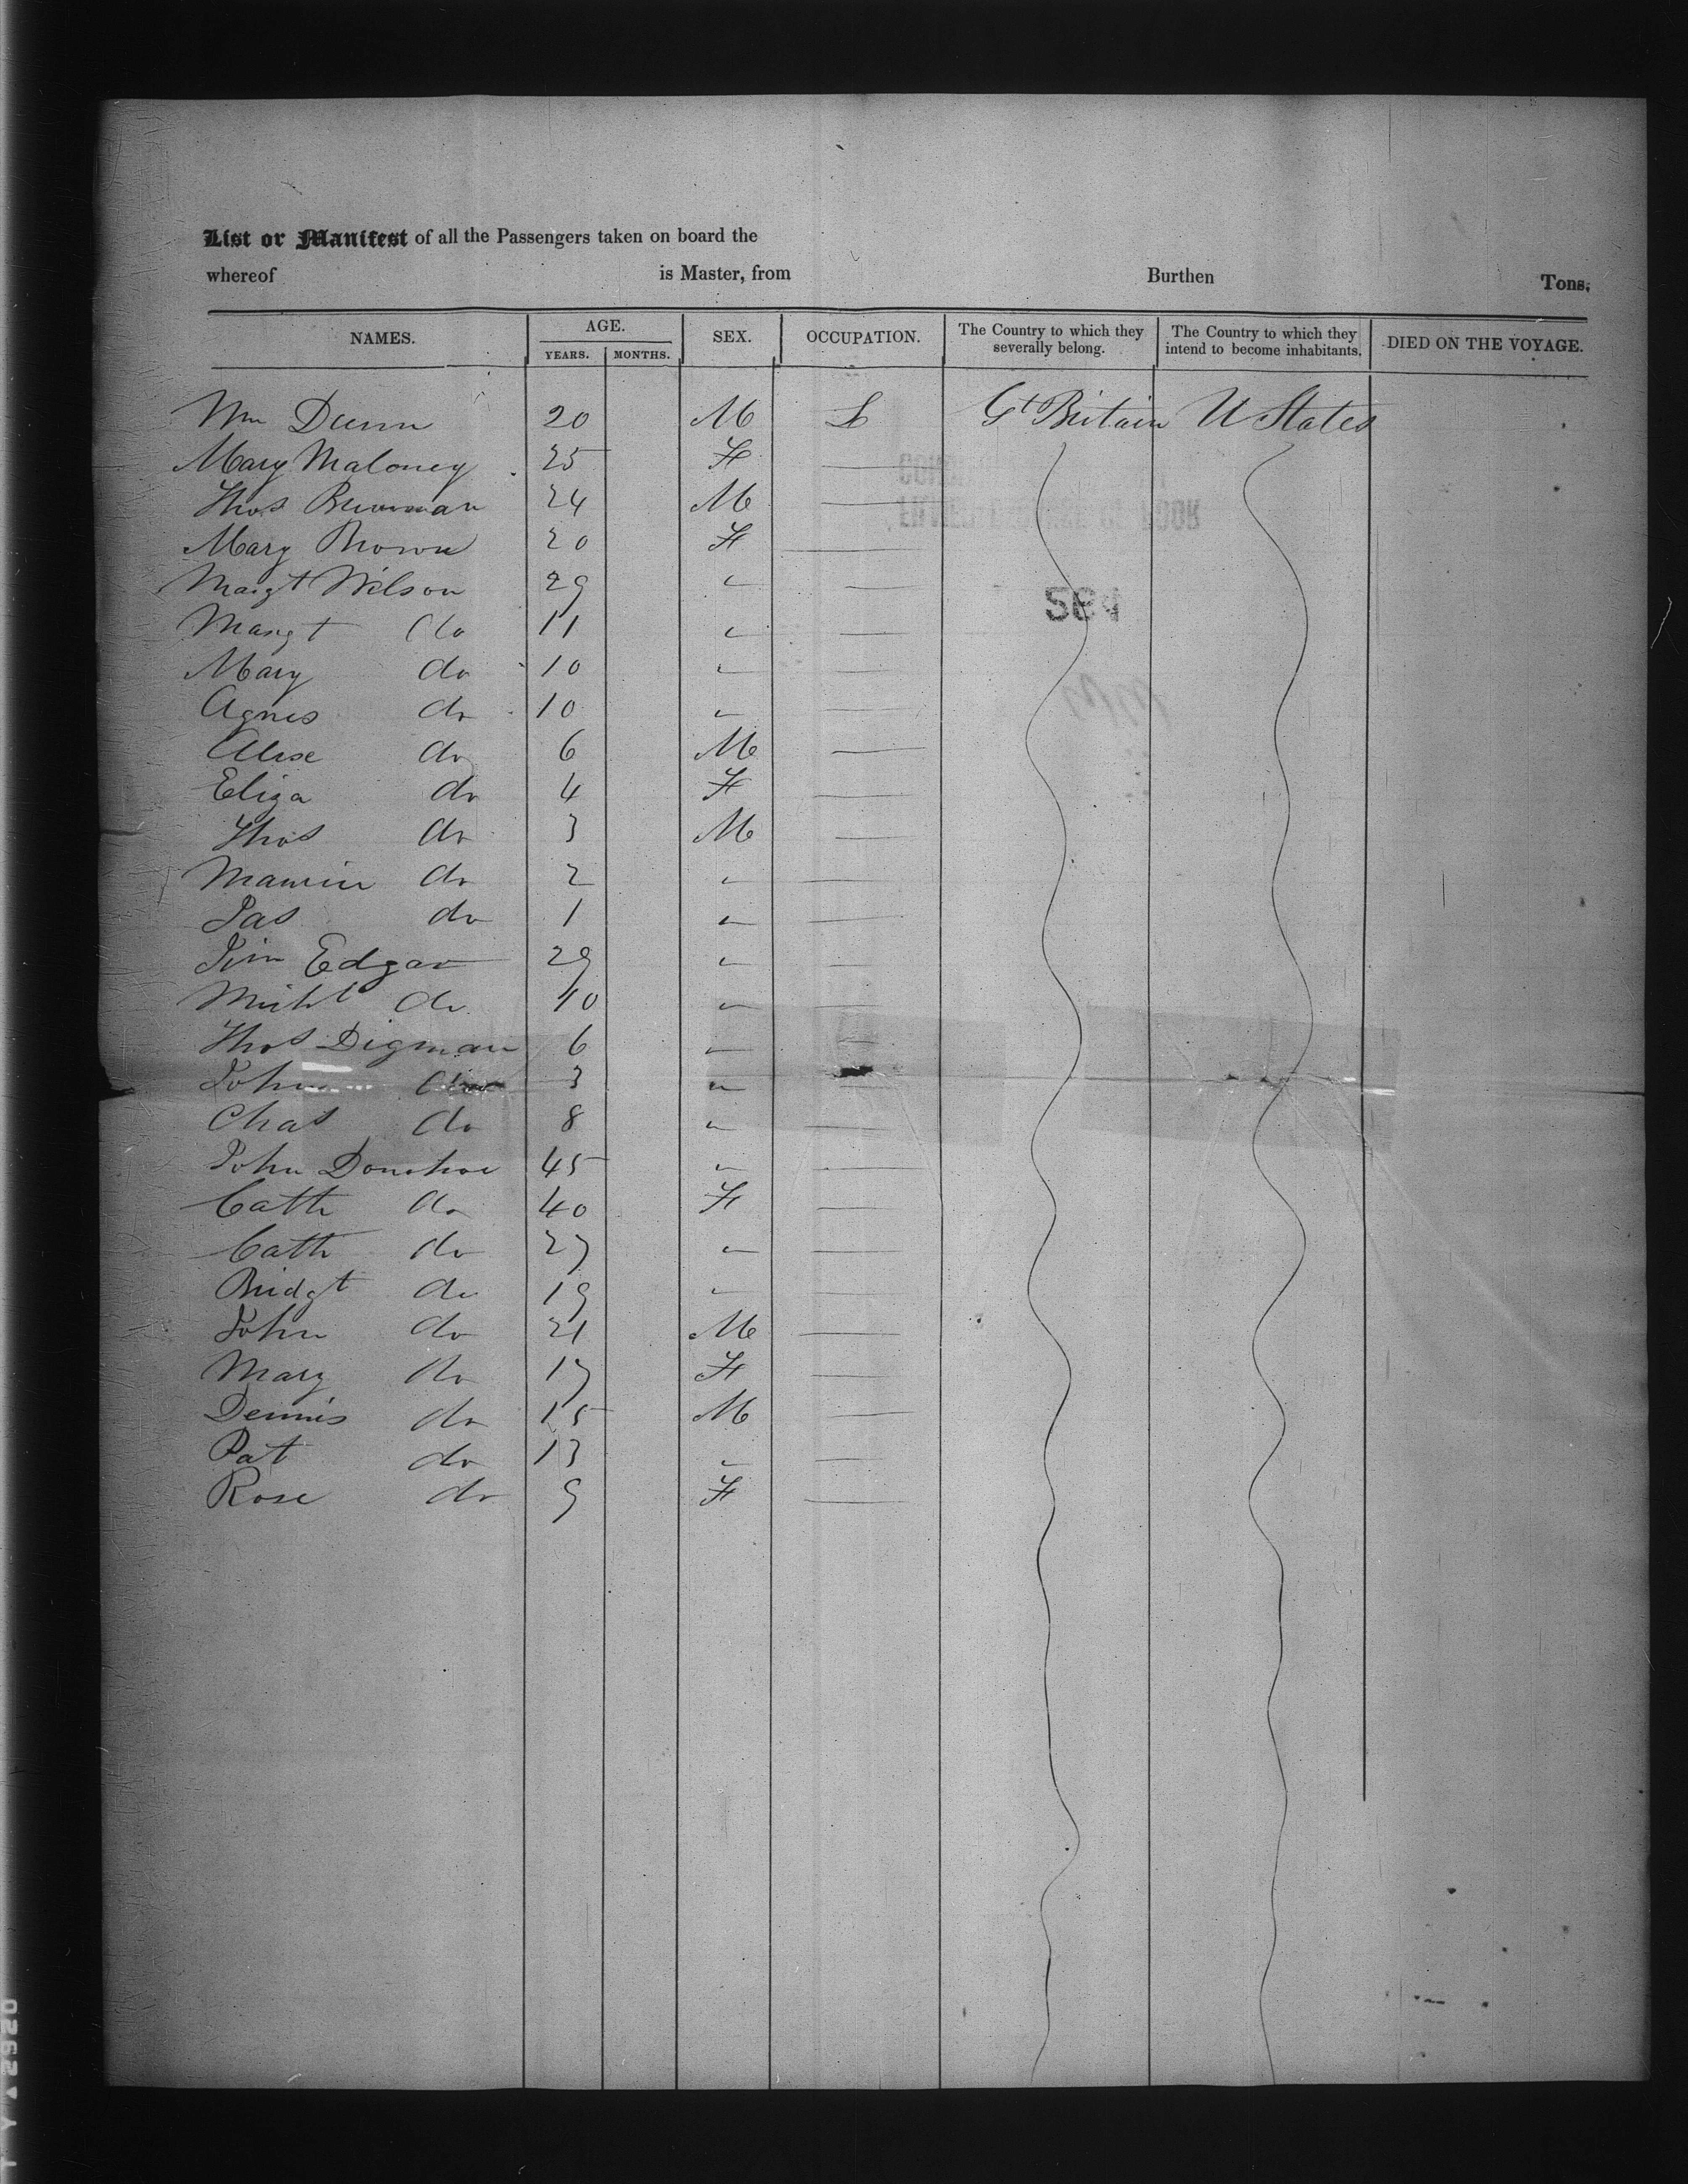 List or Manifest of all the Passengers taken on board the
whereof is Master, from Burthen Tons,
NAMES. AGE. YEARS. MONTHS. SEX. OCCUPATION. The Country to which they severally belong. The Country to which they intend to become inhabitants. DIED ON THE VOYAGE.
Wm Dunn 20 M L Gt Britain U States
Mary Maloney 25 F
Thos 24 M
Mary Brown 20 F
Margt Wilson 29 "
Margt do 11 "
Mary do 10 "
Agnes do 10 "
Alex do 6 M
Eliza do 4 F
Thos do 3 M
do 2 "
Jas do 1 "
Jim Edgar 29 "
Michl do 10 "
Thos Digman 6 "
John do 3 "
Chas do 8 "
John Donohoe 45 "
Cath do 40 F
Cath do 27 "
Bridgt do 19 "
John do 21 M
Mary do 17 F
Dennis do 15 M
Pat do 13 "
Rose do 9 F